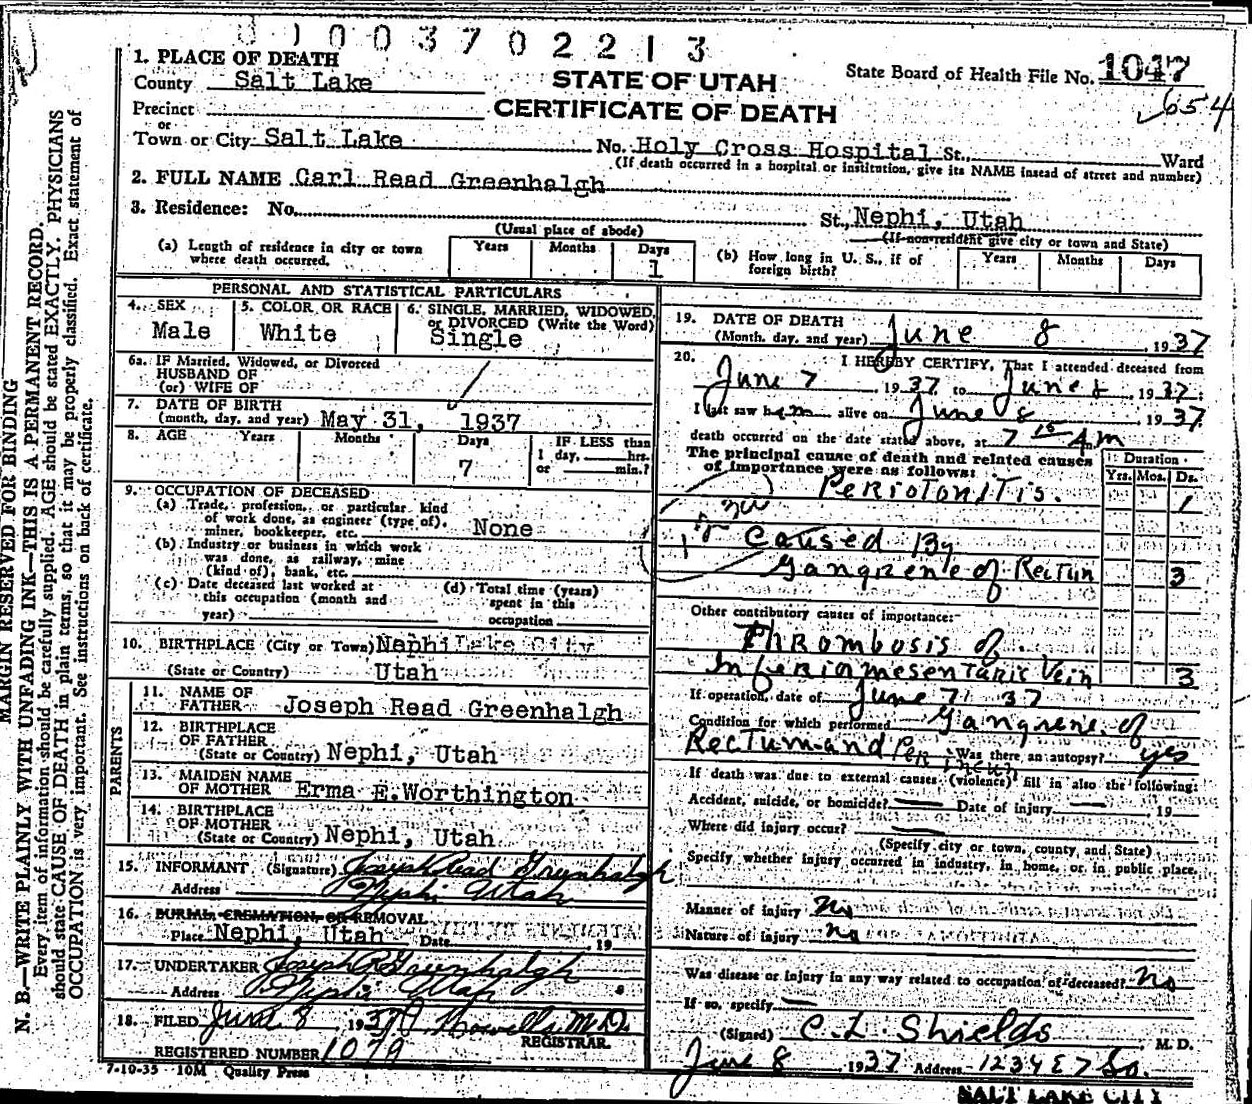 0 1 0 0 3 7 0 2 2 1 3
1. PLACE OF DEATH
County Salt Lake
STATE OF UTAH
State Board of Health File No. 1047
654
Precinct
CERTIFICATE OF DEATH
or
Town or City Salt Lake No. Holy Cross Hospital St., Ward
(If death occurred in a hospital or institution, give its NAME instead of street and number)
2. FULL NAME Carl Read Greenhalgh
3. Residence: No. St., Nephi, Utah
(Usual place of abode) (If non-resident give city or town and State)
(a) Length of residence in city or town where death occurred. Years Months Days 1
(b) How long in U. S., if of foreign birth? Years Months Days
PERSONAL AND STATISTICAL PARTICULARS
4. SEX Male
5. COLOR OR RACE White
6. SINGLE, MARRIED, WIDOWED, or DIVORCED (Write the Word) Single
6a. IF Married, Widowed, or Divorced
HUSBAND OF
(or) WIFE OF
7. DATE OF BIRTH
(month, day, and year) May 31, 1937
8. AGE Years Months Days 7 IF LESS than
1 day, hrs.
or min.?
9. OCCUPATION OF DECEASED
(a) Trade, profession, or particular kind
of work done, as engineer (type of),
miner, bookkeeper, etc. None
(b) Industry or business in which work
was done, as railway, mine
(kind of), bank, etc.
(c) Date deceased last worked at
this occupation (month and
year)
(d) Total time (years)
spent in this
occupation
10. BIRTHPLACE (City or Town) Nephi Lake City
(State or Country) Utah
PARENTS
11. NAME OF
FATHER Joseph Read Greenhalgh
12. BIRTHPLACE
OF FATHER
(State or Country) Nephi, Utah
13. MAIDEN NAME
OF MOTHER Erma E. Worthington
14. BIRTHPLACE
OF MOTHER
(State or Country) Nephi, Utah
15. INFORMANT (Signature) Joseph Read Greenhalgh
Address Nephi Utah
16. BURIAL, CREMATION, OR REMOVAL
Place Nephi, Utah Date 19
17. UNDERTAKER Joseph R Greenhalgh
Address Nephi Utah
18. FILED June 8 1937 Howells M.D.
REGISTRAR.
REGISTERED NUMBER 1079
7-10-35 10M Quality Press
19. DATE OF DEATH
(Month, day, and year) June 8, 1937
20. I HEREBY CERTIFY, That I attended deceased from
June 7 1937 to June 8 1937.
I last saw him alive on June 8 1937
death occurred on the date stated above, at 7 15 A.m
The principal cause of death and related causes
of importance were as follows:
Duration
Yrs. Mos. Ds.
PERIOTONITIS. 1
Caused By
Gangrene of Rectum 3
Other contributory causes of importance:
Thrombosis of
Inferior mesentaric Vein 3
If operation, date of June 7 37
Condition for which performed Gangrene of
Rectum and Perineus Was there an autopsy? yes
If death was due to external causes (violence) fill in also the following:
Accident, suicide, or homicide? Date of injury 19
Where did injury occur?
(Specify city or town, county, and State)
Specify whether injury occurred in industry, in home, or in public place.
Manner of injury No
Nature of injury No
Was disease or injury in any way related to occupation of deceased? No
If so, specify
(Signed) C. L. Shields M. D.
June 8 1937 Address 1234 E 7 So.
SALT LAKE CITY
MARGIN RESERVED FOR BINDING
N. B.—WRITE PLAINLY WITH UNFADING INK—THIS IS A PERMANENT RECORD.
Every item of information should be carefully supplied. AGE should be stated EXACTLY. PHYSICIANS
should state CAUSE OF DEATH in plain terms, so that it may be properly classified. Exact statement of
OCCUPATION is very important. See instructions on back of certificate.